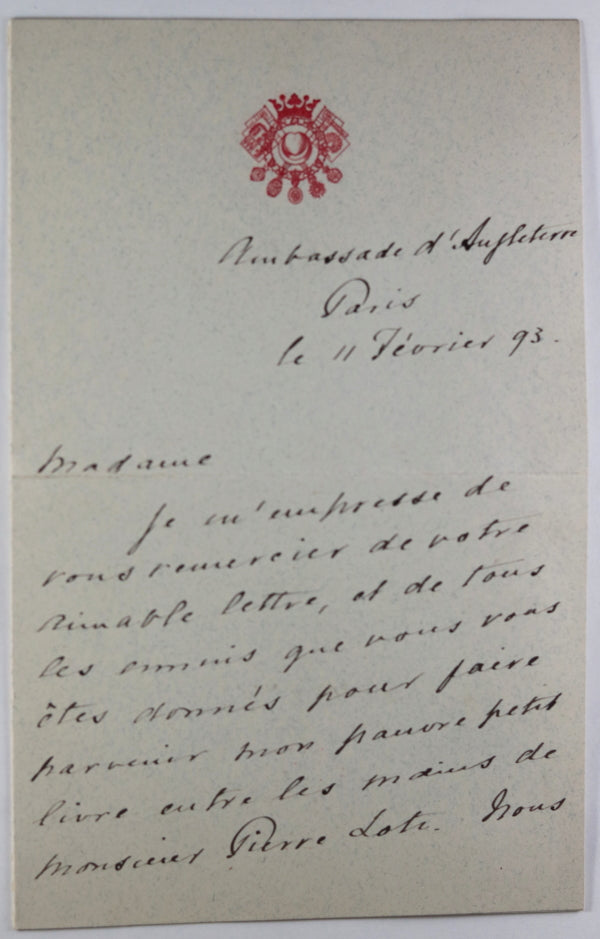 Ambassade d'Angleterre
Paris
le 11 Février 93.
Madame
Je m'empresse de
vous remercier de votre
aimable lettre, et de tous
les ennuis que vous vous
êtes donnés pour faire
parvenir mon pauvre petit
livre entre les mains de
monsieur Pierre Loti. Nous